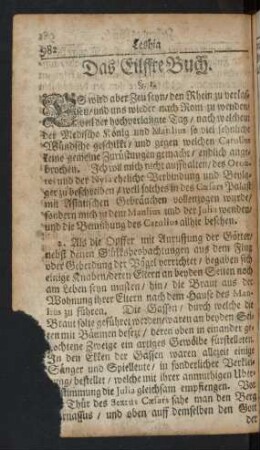 982 Lesbia
Das Eilffte Buch.
§. 1.
ES wird aber Zeit seyn / den Rhein zu verlas-
sen / und uns wieder nach Rom zu wenden /
weil der hochverlangte Tag / nach welchem
der Medische König und Manlius so viel sehnliche
Wündsche geschikt / und gegen welchen Catullus
keine gemeine Zurüstungen gemacht / endlich ange-
brochen. Ich wil mich nicht aufhalten / des
und der eheliche Verbindung und Beyla-
ger zu beschreiben / weil solches in des Cæsars Palast
mit Asiatischen Gebräuchen vollenzogen wurde /
sondern mich zu dem Manlius und der Julia wenden /
und die Bemühung des Catullus allhie besehen.
2. Als die Opffer mit Anruffung der Götter /
nebst denen Glüksbeobachtungen aus dem Flug
oder Geberdung der Vögel verrichtet / begaben sich
einige Knaben / deren Eltern an beyden Seiten noch
am Leben seyn musten / hin / die Braut aus der
Wohnung ihrer Eltern nach dem Hause des Man-
lius zu führen. Die Gassen / durch welche die
Braut solte geführet werden / waren an beyden Sei-
ten mit Bäumen besetzt / deren oben in einander ge-
flochtene Zweige ein artiges Gewölbe fürstelleten.
In den Ekken der Gassen waren allezeit einige
Sänger und Spielleute / in sonderlicher Verklei-
dung / bestellet / welche mit ihrer anmuthigen
stimmung die Julia gleichsam empfiengen. Vor
Thür des Sextus Cæsars sahe man den Berg
Parnassus / und oben auff demselben den Gott
der